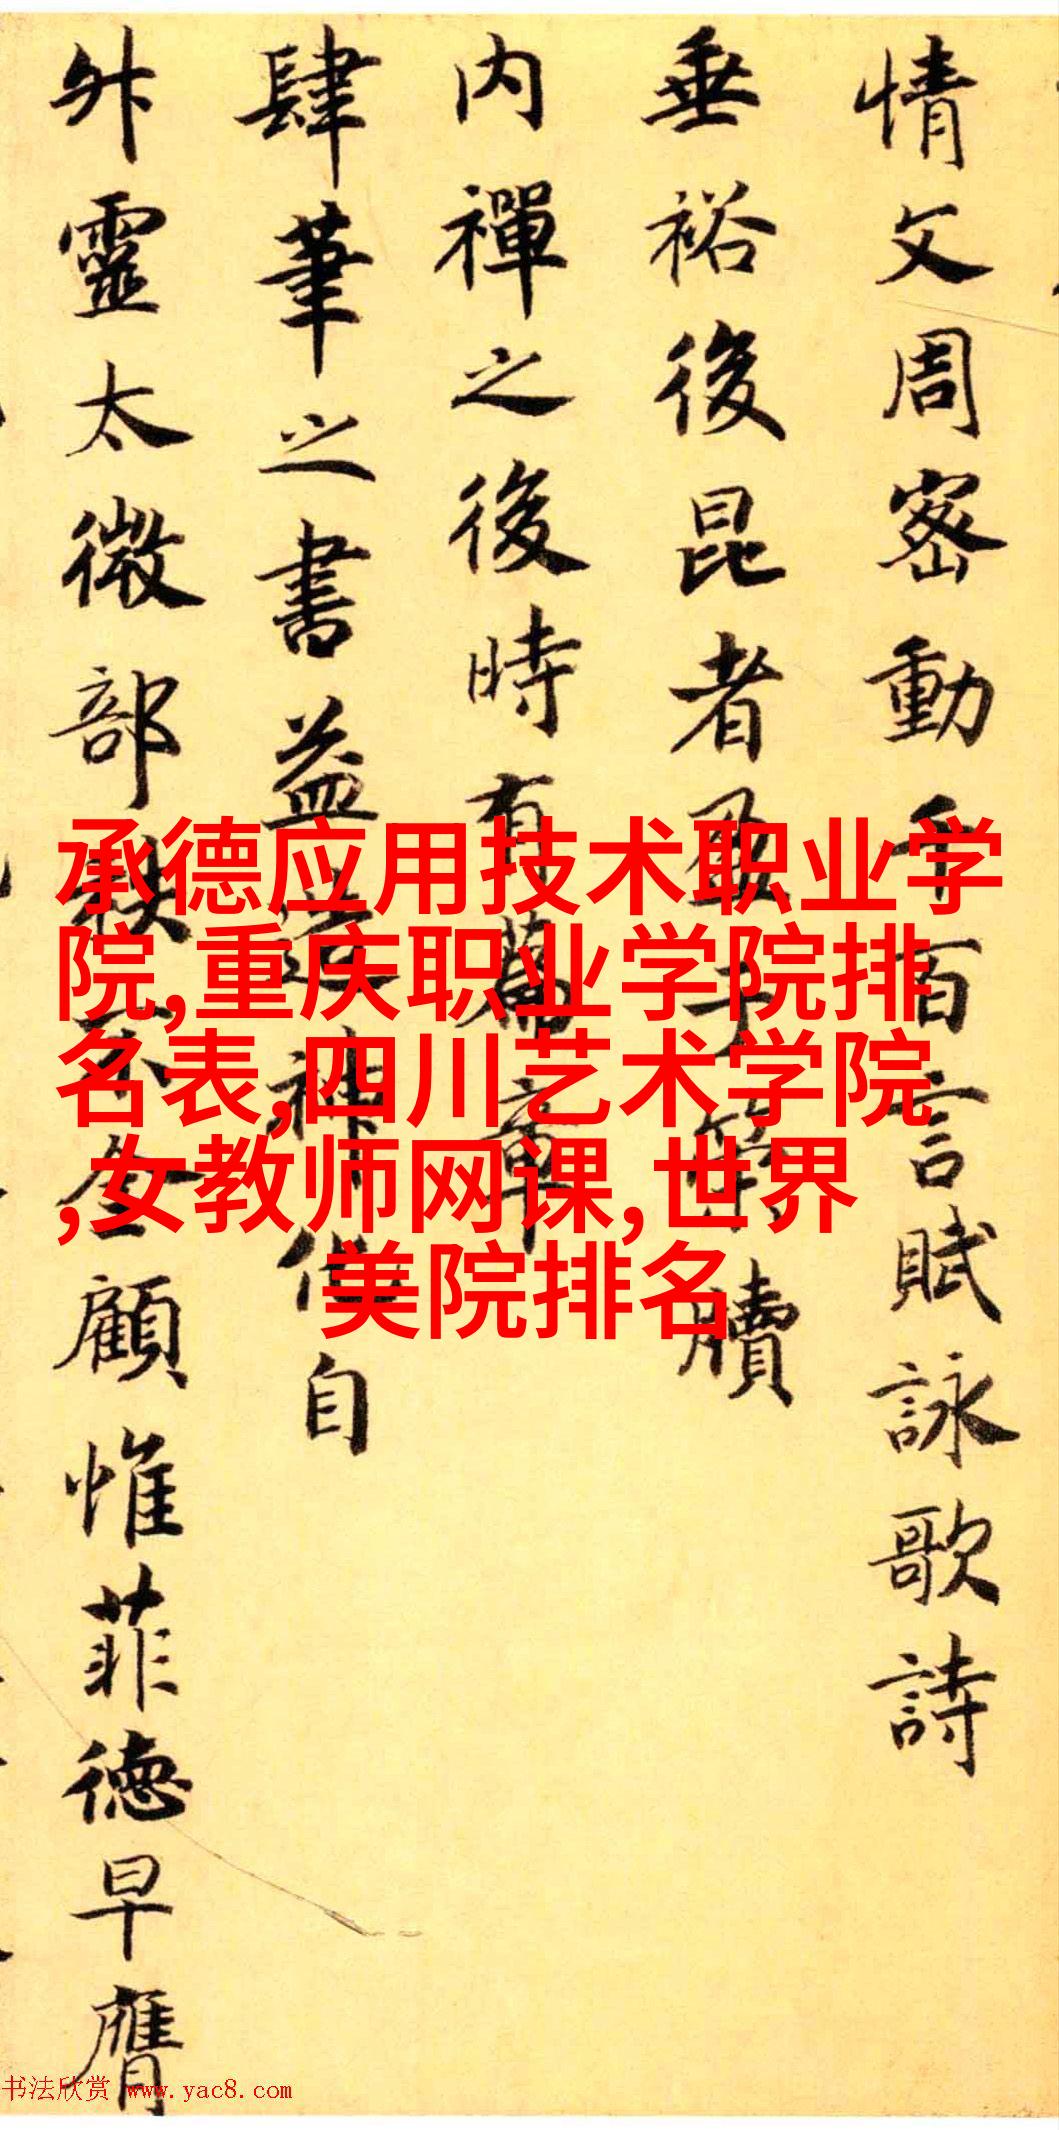 情文周密動千百言賦詠歌詩
垂裕後昆者盈于牘
内禪之後時有篇章
肆筆之書益造神化自
升靈太微部帙不全顧惟菲德早膺
承德应用技术职业学
院,重庆职业学院排
名表,四川艺术学院
,女教师网课,世界
美院排名
书法欣赏 www.yac8.com